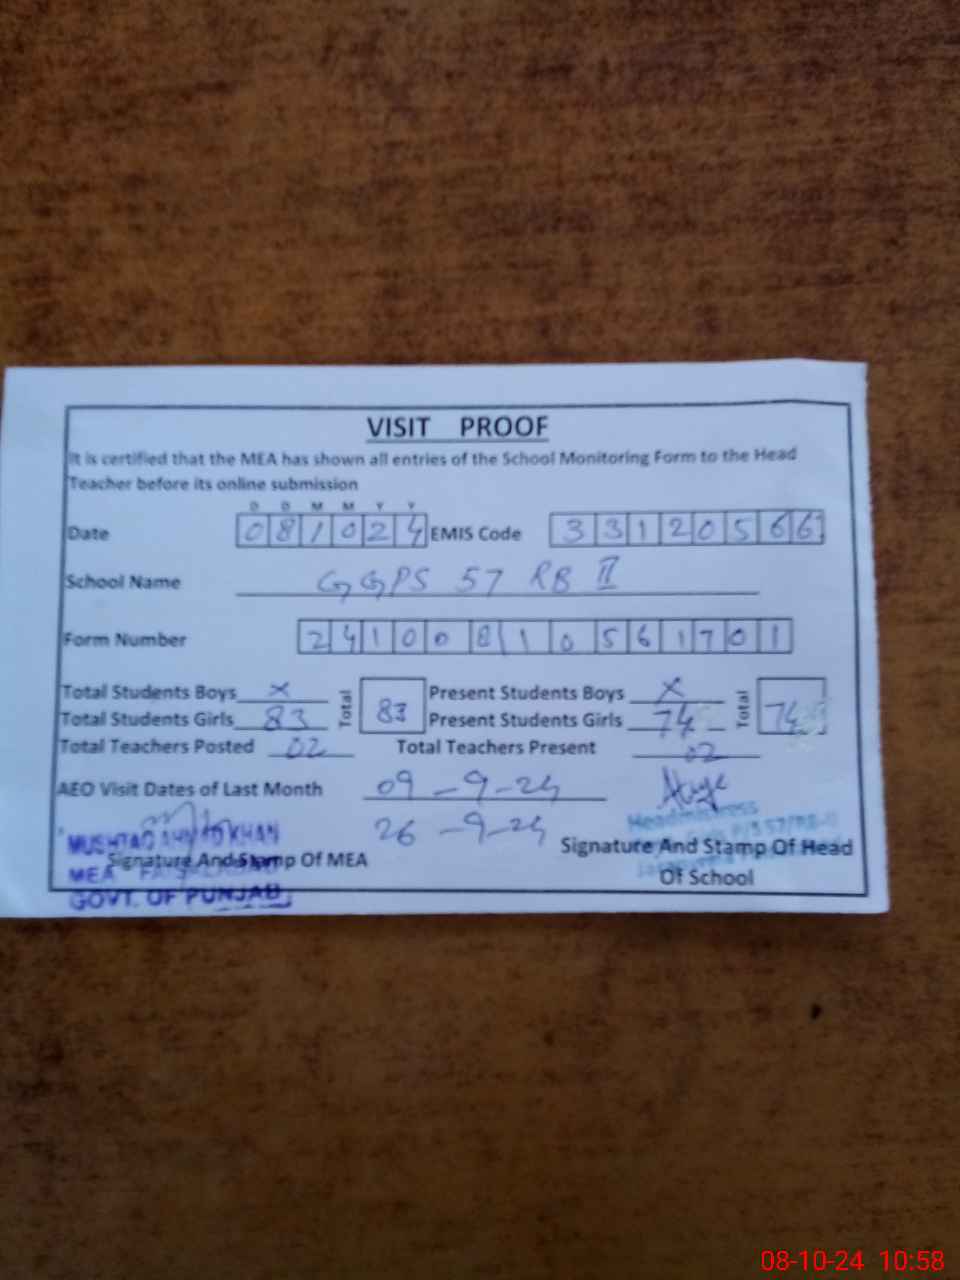 VISIT PROOF
It is certified that the MEA has shown all entries of the School Monitoring Form to the Head
Teacher before its online submission
D D M M Y Y
Date 081024 EMIS Code 33120566
School Name GGPS 57 RB II
Form Number 24100810561701
Total Students Boys x Total 83 Present Students Boys x Total 74
Total Students Girls 83 Present Students Girls 74
Total Teachers Posted 02 Total Teachers Present 02
AEO Visit Dates of Last Month 09-9-24
26-9-24
MUSHTAQ AHMAD KHAN
Signature And Stamp Of MEA
MEA FAISALABAD
GOVT. OF PUNJAB
Headmistress
Signature And Stamp Of Head
Of School
08-10-24 10:58